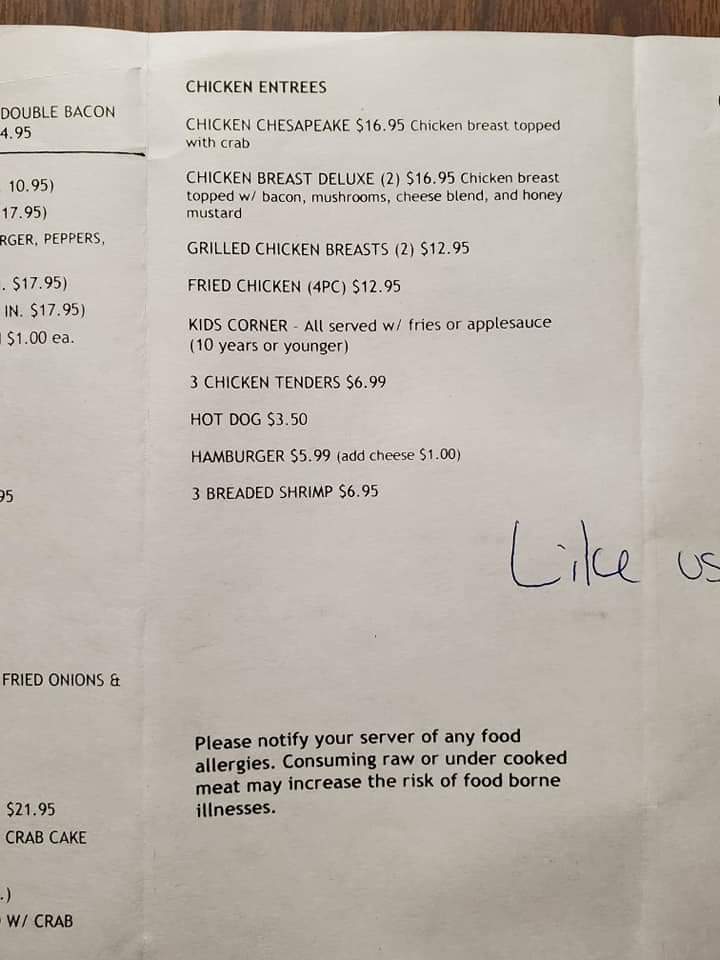 DOUBLE BACON
4.95
10.95)
17.95)
RGER, PEPPERS,
. $17.95)
IN. $17.95)
$1.00 ea.
95
FRIED ONIONS &
$21.95
CRAB CAKE
.)
W/ CRAB
CHICKEN ENTREES
CHICKEN CHESAPEAKE $16.95 Chicken breast topped
with crab
CHICKEN BREAST DELUXE (2) $16.95 Chicken breast
topped w/ bacon, mushrooms, cheese blend, and honey
mustard
GRILLED CHICKEN BREASTS (2) $12.95
FRIED CHICKEN (4PC) $12.95
KIDS CORNER - All served w/ fries or applesauce
(10 years or younger)
3 CHICKEN TENDERS $6.99
HOT DOG $3.50
HAMBURGER $5.99 (add cheese $1.00)
3 BREADED SHRIMP $6.95
Like us
Please notify your server of any food
allergies. Consuming raw or under cooked
meat may increase the risk of food borne
illnesses.